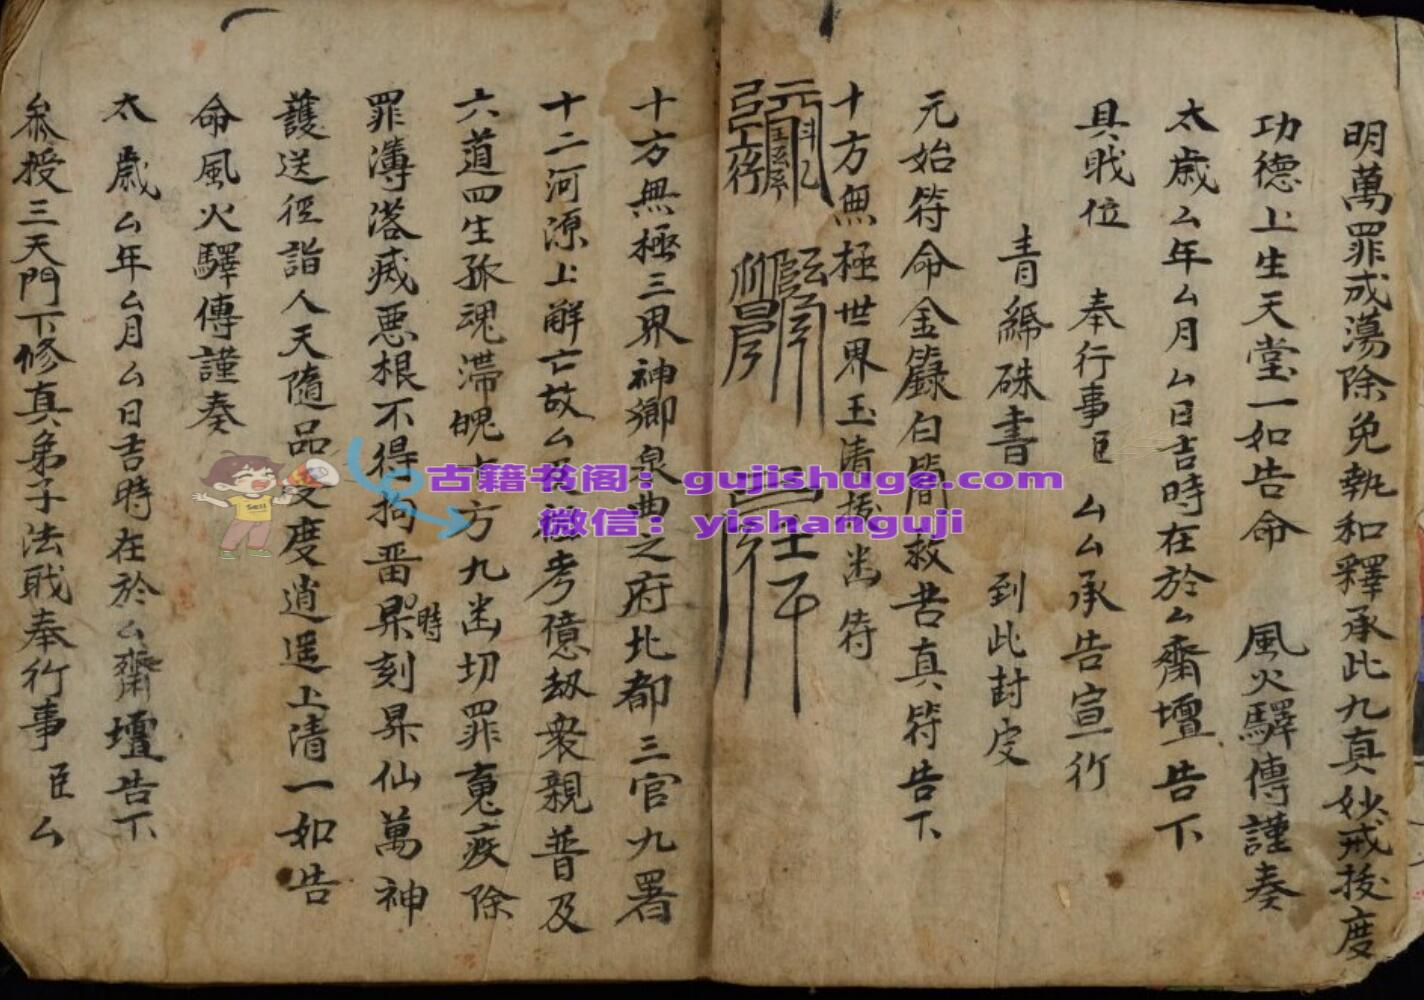 明萬罪咸蕩除免執和釋承此九真妙戒拔度
功德上生天堂一如告命 風火驛傳謹奏
太歲厶年厶月厶日吉時在於厶齋壇告下
具戝位 奉行事臣 厶厶承告宣行
青編硃書 到此封皮
元始符命金籙白簡救苦真符告下
十方無極世界玉清拔幽符
十方無極三界神鄉泉曲之府北都三官九署
十二河源上解亡故厶及祖考億劫衆親普及
六道四生孤魂滯魄 方九幽切罪 疾除
罪薄落滅惡根不得拘畱 時刻昇仙萬神
護送徑詣人天隨品 度逍遥上清一如告
命風火驛傳謹奏
太歲厶年厶月厶日吉時在於厶齋壇告下
叅授三天門下修真弟子法戝奉行事臣厶
古籍书阁：gujishuge.com
微信：yishanguji